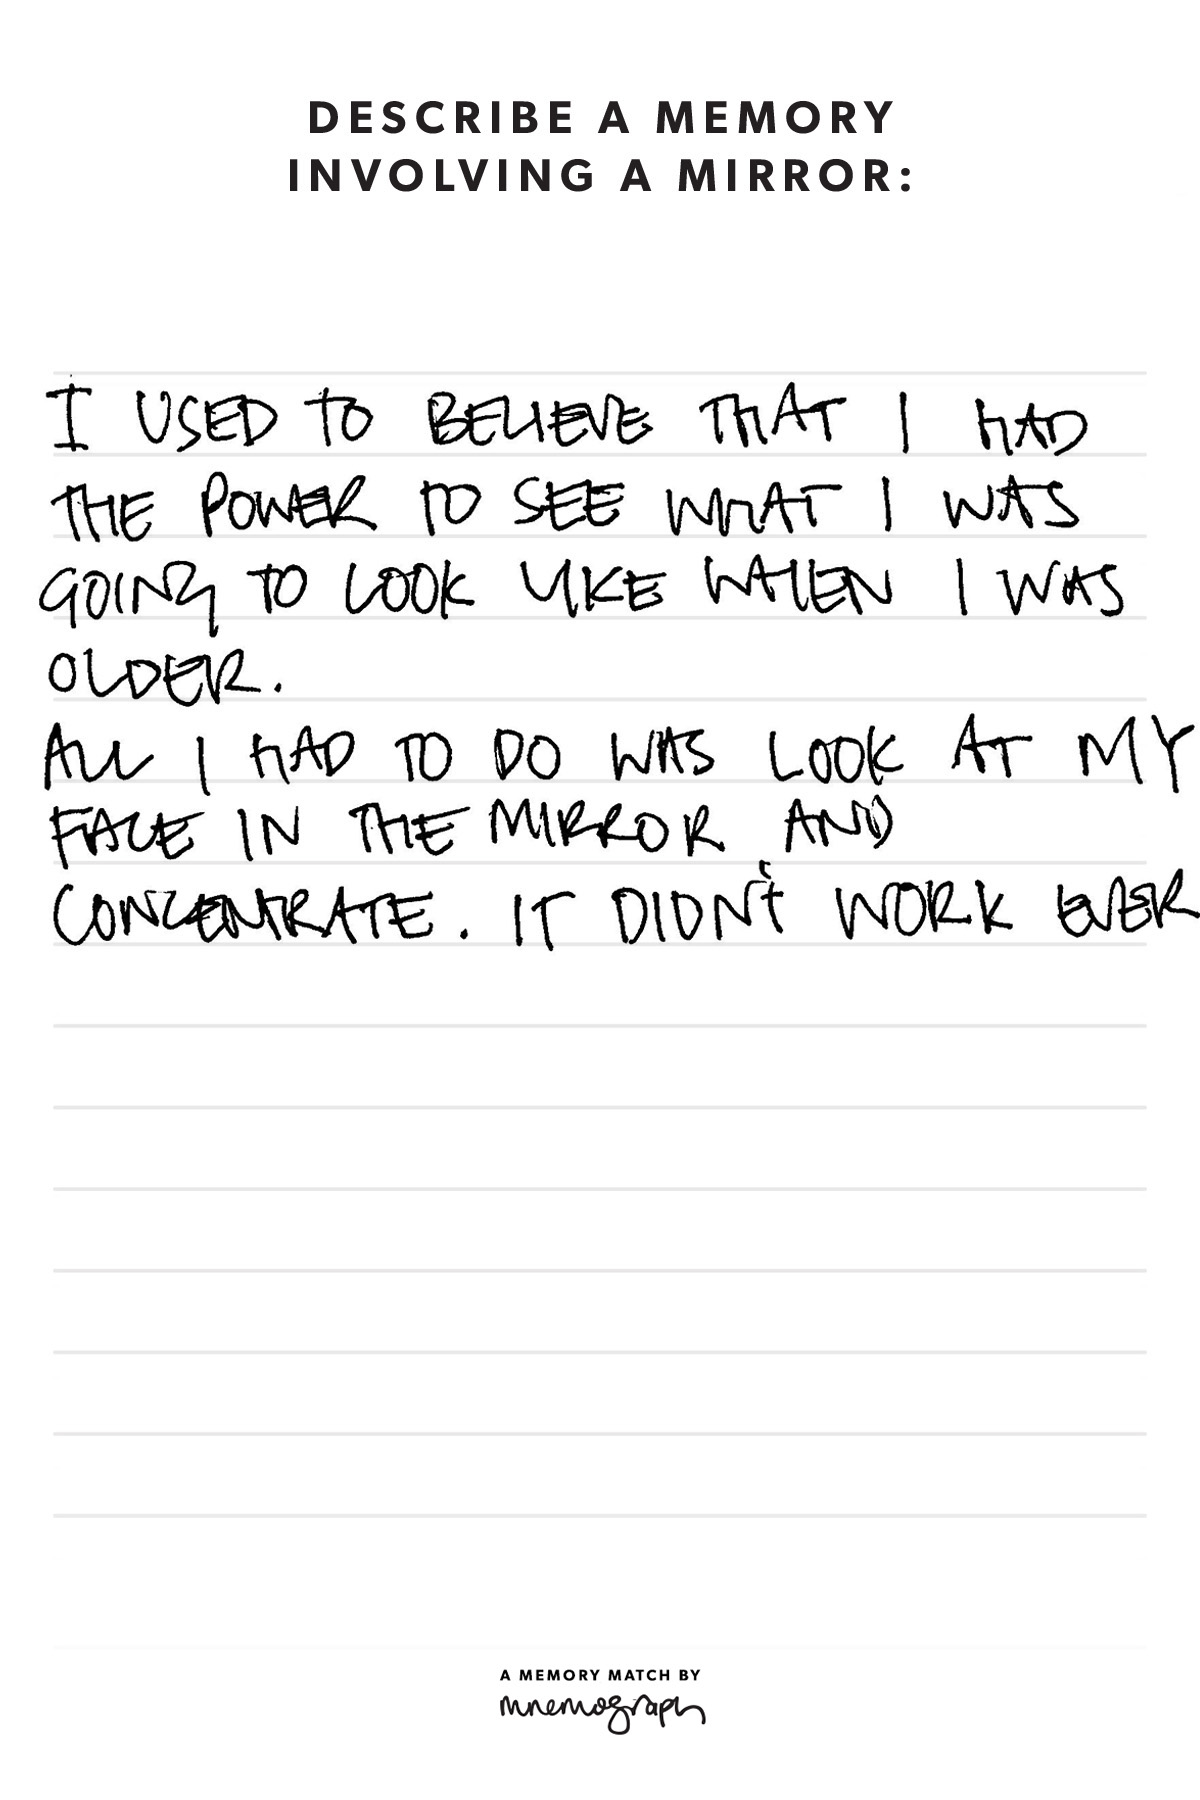 DESCRIBE A MEMORY
INVOLVING A MIRROR:
I USED TO BELIEVE THAT I HAD
THE POWER TO SEE WHAT I WAS
GOING TO LOOK LIKE WHEN I WAS
OLDER.
ALL I HAD TO DO WAS LOOK AT MY
FACE IN THE MIRROR AND
CONCENTRATE. IT DIDN'T WORK EVER
A MEMORY MATCH BY
mnemograph